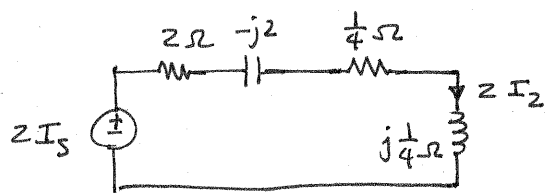 2Ω -j2 1/4 Ω
2 I_s + −
2 I_2
j 1/4 Ω